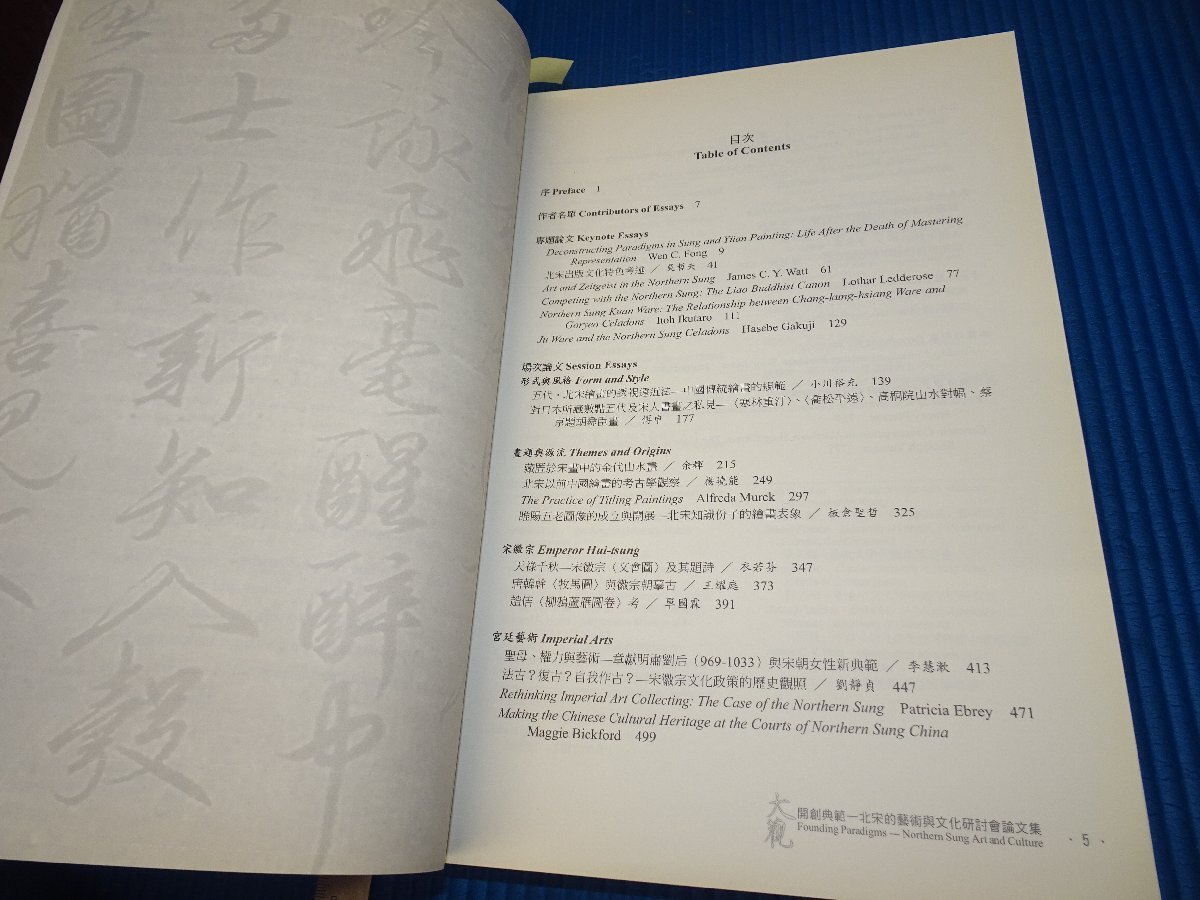 吟詠飛毫醒醉中
多士作新知入彀
畫圖猶喜見文
目次
Table of Contents
序 Preface 1
作者名單 Contributors of Essays 7
專題論文 Keynote Essays
Deconstructing Paradigms in Sung and Yüan Painting: Life After the Death of Mastering
Representation Wen C. Fong 9
北宋出版文化特色考述 / 吳哲夫 41
Art and Zeitgeist in the Northern Sung James C. Y. Watt 61
Competing with the Northern Sung: The Liao Buddhist Canon Lothar Ledderose 77
Northern Sung Kuan Ware: The Relationship between Chang-kung-hsiang Ware and
Goryeo Celadons Itoh Ikutaro 111
Ju Ware and the Northern Sung Celadons Hasebe Gakuji 129
場次論文 Session Essays
形式與風格 Form and Style
五代、北宋繪畫的透視遠近法—中國傳統繪畫的規範 / 小川裕充 139
對日本所藏數點五代及宋人書畫之私見—〈寒林重汀〉、〈喬松平遠〉、高桐院山水對幅、蔡
京題胡舜臣畫 / 傅申 177
畫題與源流 Themes and Origins
藏匿於宋畫中的金代山水畫 / 余輝 215
北宋以前中國繪畫的考古學觀察 / 楊曉能 249
The Practice of Titling Paintings Alfreda Murck 297
睢陽五老圖像的成立與開展—北宋知識份子的繪畫表象 / 板倉聖哲 325
宋徽宗 Emperor Hui-tsung
天祿千秋—宋徽宗〈文會圖〉及其題詩 / 衣若芬 347
唐韓幹〈牧馬圖〉與徽宗朝摹古 / 王耀庭 373
趙佶〈柳鴉蘆雁圖卷〉考 / 單國霖 391
宮廷藝術 Imperial Arts
聖母、權力與藝術—章獻明肅劉后(969-1033)與宋朝女性新典範 / 李慧漱 413
法古？復古？自我作古？—宋徽宗文化政策的歷史觀照 / 劉靜貞 447
Rethinking Imperial Art Collecting: The Case of the Northern Sung Patricia Ebrey 471
Making the Chinese Cultural Heritage at the Courts of Northern Sung China
Maggie Bickford 499
大觀
開創典範—北宋的藝術與文化研討會論文集
Founding Paradigms — Northern Sung Art and Culture
· 5 ·